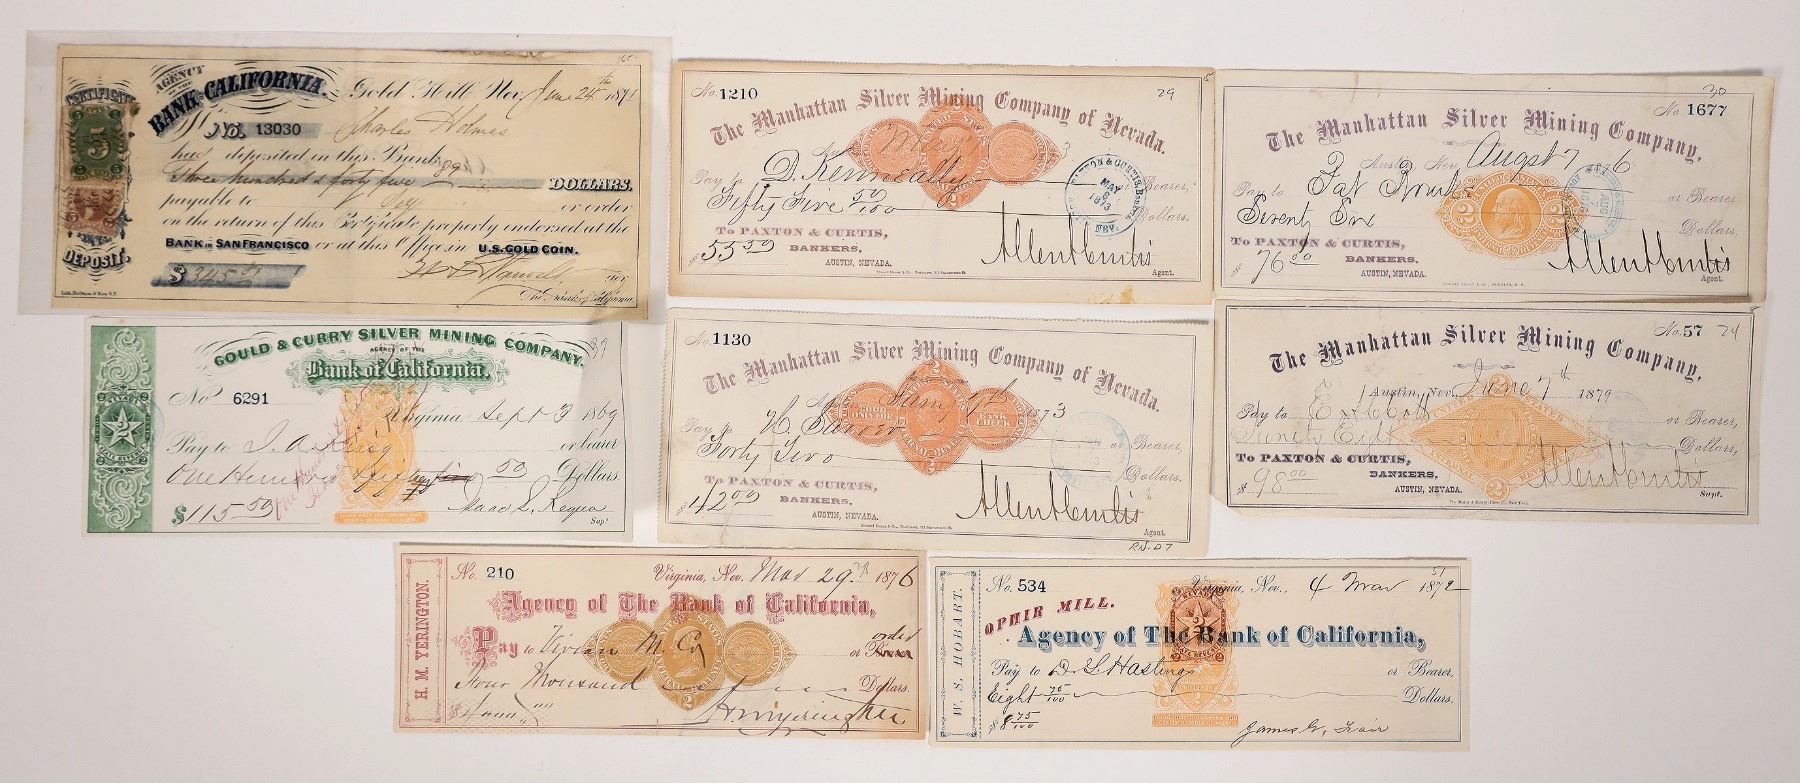 165-
AGENCY
OF THE
BANK OF CALIFORNIA.
Gold Hill Nev. June 24th 187
CERTIFICATE
No. 13030
Charles Holmes
has deposited in this Bank
Three hundred & forty five 89
DOLLARS.
payable to Self or order
on the return of this Certificate properly endorsed at the
BANK IN SAN FRANCISCO or at this Office in U.S. GOLD COIN.
DEPOSIT.
$ 345
The Bank of California
No. 1210
29
The Manhattan Silver Mining Company of Nevada.
May 7 3
Pay to D. Kenneally or Bearer,
Fifty Five 50/100 Dollars.
PAXTON & CURTIS, Bankers,
MAY
8
1873
AUSTIN, NEV.
To PAXTON & CURTIS,
BANKERS,
AUSTIN, NEVADA.
55.50
Allen A Curtis
Agent.
30
No. 1677
The Manhattan Silver Mining Company,
Austin, Nev. Augst 7 76
Pay to Pat or Bearer
Seventy Six Dollars,
To PAXTON & CURTIS,
BANKERS,
AUSTIN, NEVADA.
76 00
Allen A Curtis
Agent.
GOULD & CURRY SILVER MINING COMPANY.
AGENCY OF THE
Bank of California.
39
No 6291
Virginia Sept 3 1869
Pay to or bearer
One Hundred fifteen 50 Dollars.
$115.50
Isaac L. Requa
Supt
No. 1130
The Manhattan Silver Mining Company of Nevada.
Jany 17th 1873
GOOD ONLY FOR
BANK CHECK
Pay to or Bearer,
Forty Two Dollars.
To PAXTON & CURTIS,
BANKERS,
AUSTIN, NEVADA.
42 00
Allen A Curtis
Agent.
RN-D7
No. 57
24
The Manhattan Silver Mining Company,
Austin, Nev. June 7th 1879
Pay to or Bearer
Ninety Eight Dollars,
To PAXTON & CURTIS,
BANKERS,
AUSTIN, NEVADA.
$ 98 00
Allen A Curtis
Supt.
H. M. YERINGTON.
No. 210
Virginia, Nev. Mar 29th 1876
Agency of The Bank of California,
order
Pay to Vivian M. Co or Bearer
Four Thousand Dollars.
$4000
HM Yerington
W. S. HOBART.
No. 534
51
Virginia, Nev., 4 Mar 1872
OPHIR MILL.
Agency of The Bank of California,
Pay to D. L. Hastings or Bearer,
Eight 75/100 Dollars.
$ 8 75/100
James G. Fair